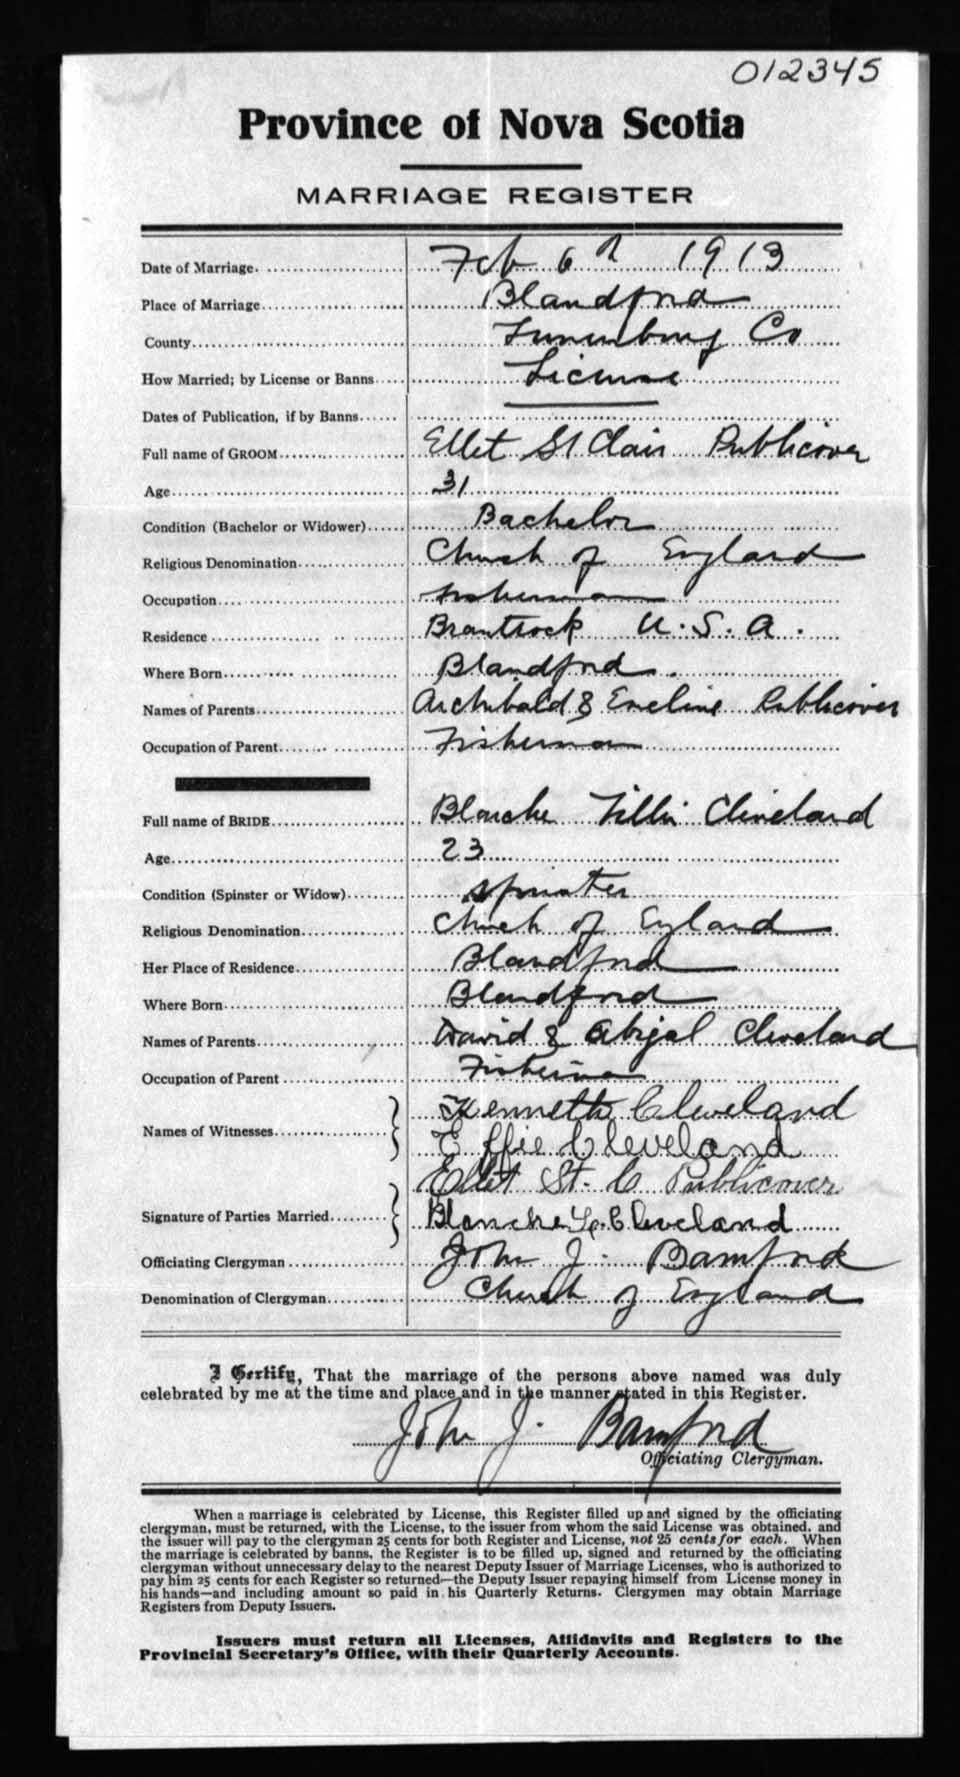 012345
Province of Nova Scotia
MARRIAGE REGISTER
Date of Marriage. Feb 6th 1913
Place of Marriage Blandford
County Lunenburg Co
How Married; by License or Banns License
Dates of Publication, if by Banns
Full name of GROOM Ellet St Clair Publicover
Age 31
Condition (Bachelor or Widower) Bachelor
Religious Denomination Church of England
Occupation Fisherman
Residence Brantrock U.S.A.
Where Born Blandford.
Names of Parents Archibald & Eveline Publicover
Occupation of Parent Fisherman
Full name of BRIDE Blanche Lillie Cleveland
Age 23
Condition (Spinster or Widow) Spinster
Religious Denomination Church of England
Her Place of Residence Blandford
Where Born Blandford
Names of Parents David & Abigal Cleveland
Occupation of Parent Fisherman
Names of Witnesses Kenneth Cleveland
Effie Cleveland
Signature of Parties Married Ellet St. C Publicover
Blanche L. Cleveland
Officiating Clergyman John J. Bamford
Denomination of Clergyman Church of England
I Certify, That the marriage of the persons above named was duly
celebrated by me at the time and place and in the manner stated in this Register.
John J. Bamford
Officiating Clergyman.
When a marriage is celebrated by License, this Register filled up and signed by the officiating
clergyman, must be returned, with the License, to the issuer from whom the said License was obtained, and
the issuer will pay to the clergyman 25 cents for both Register and License, not 25 cents for each. When
the marriage is celebrated by banns, the Register is to be filled up, signed and returned by the officiating
clergyman without unnecessary delay to the nearest Deputy Issuer of Marriage Licenses, who is authorized to
pay him 25 cents for each Register so returned—the Deputy Issuer repaying himself from License money in
his hands—and including amount so paid in his Quarterly Returns. Clergymen may obtain Marriage
Registers from Deputy Issuers.
Issuers must return all Licenses, Affidavits and Registers to the
Provincial Secretary's Office, with their Quarterly Accounts.